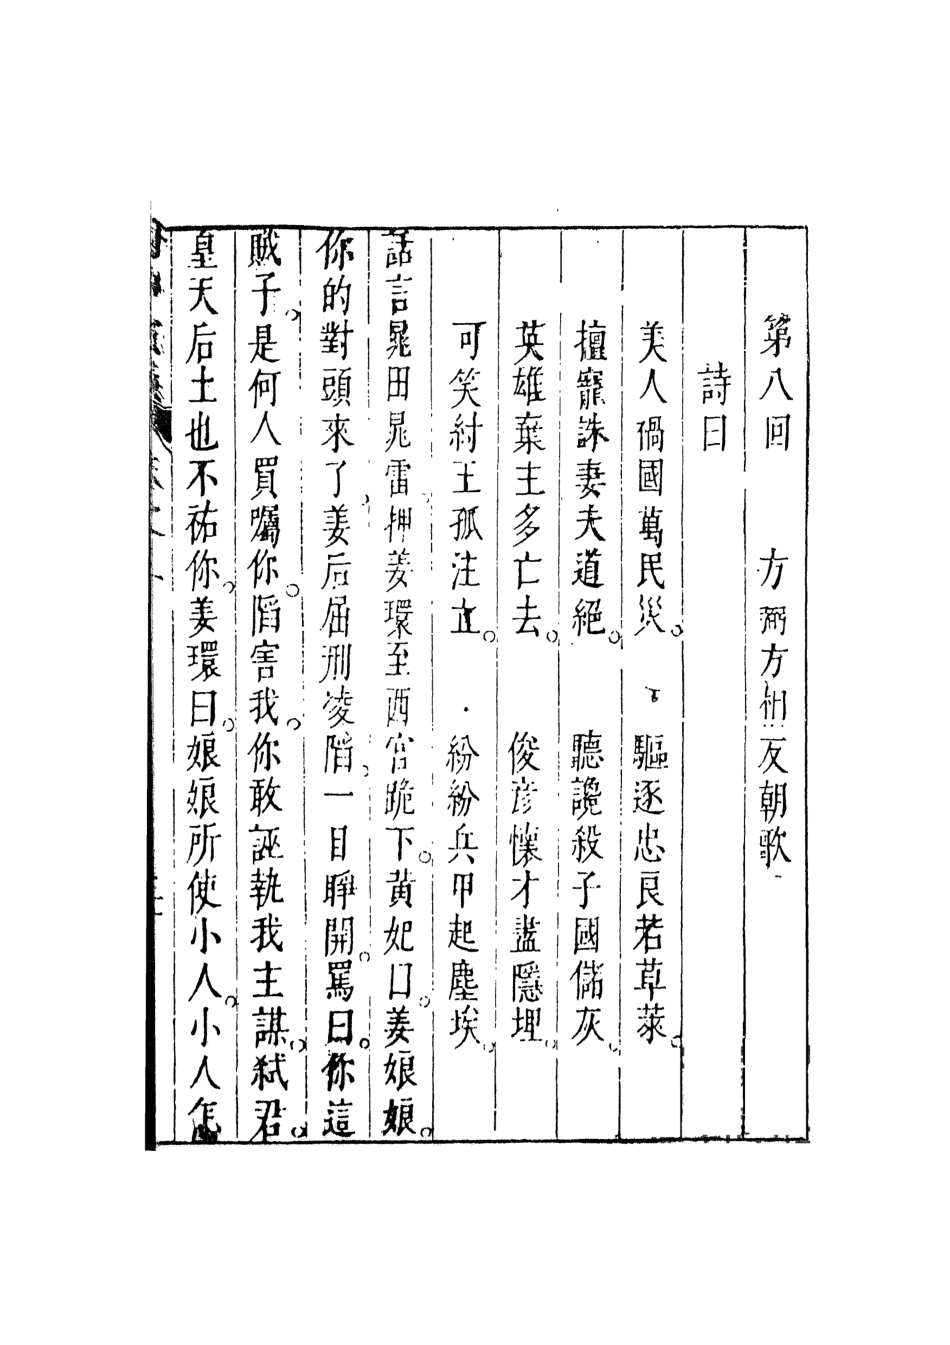 第八回　方弼方相反朝歌
詩曰
美人禍國萬民災。驅逐忠良若草萊。
擅寵誅妻夫道絕。聽讒殺子國儲灰。
英雄棄主多亡去。俊彦懷才盡隱埋。
可笑紂王孤注立。紛紛兵甲起塵埃。
話言晁田晁雷押姜環至西宫跪下。黄妃曰。姜娘娘。
你的對頭來了、姜后屈刑凌陷、一目睜開。罵曰。你這
賊子。是何人買囑你。陷害我。你敢誣執我主謀。弑君。
皇天后土也不祐你。姜環曰。娘娘所使小人。小人怎